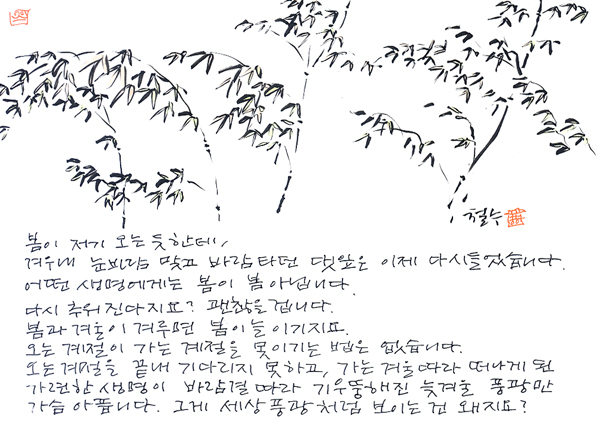 철수
봄이 저기 오는 듯한데,
겨우내 눈바람 맞고 바람타던 댓잎은 이제 다 시들었습니다.
어떤 생명에게는 봄이 봄 아닙니다.
다시 추워진다지요? 괜찮을겁니다.
봄과 겨울이 겨루면 봄이 늘 이기지요.
오는 계절이 가는 계절을 못이기는 법은 없습니다.
오는 계절을 끝내 기다리지 못하고, 가는 겨울따라 떠나게 된
가련한 생명이 바람결 따라 기우뚱해진 늦겨울 풍광만
가슴 아픕니다. 그게 세상풍광처럼 보이는 건 왜지요?